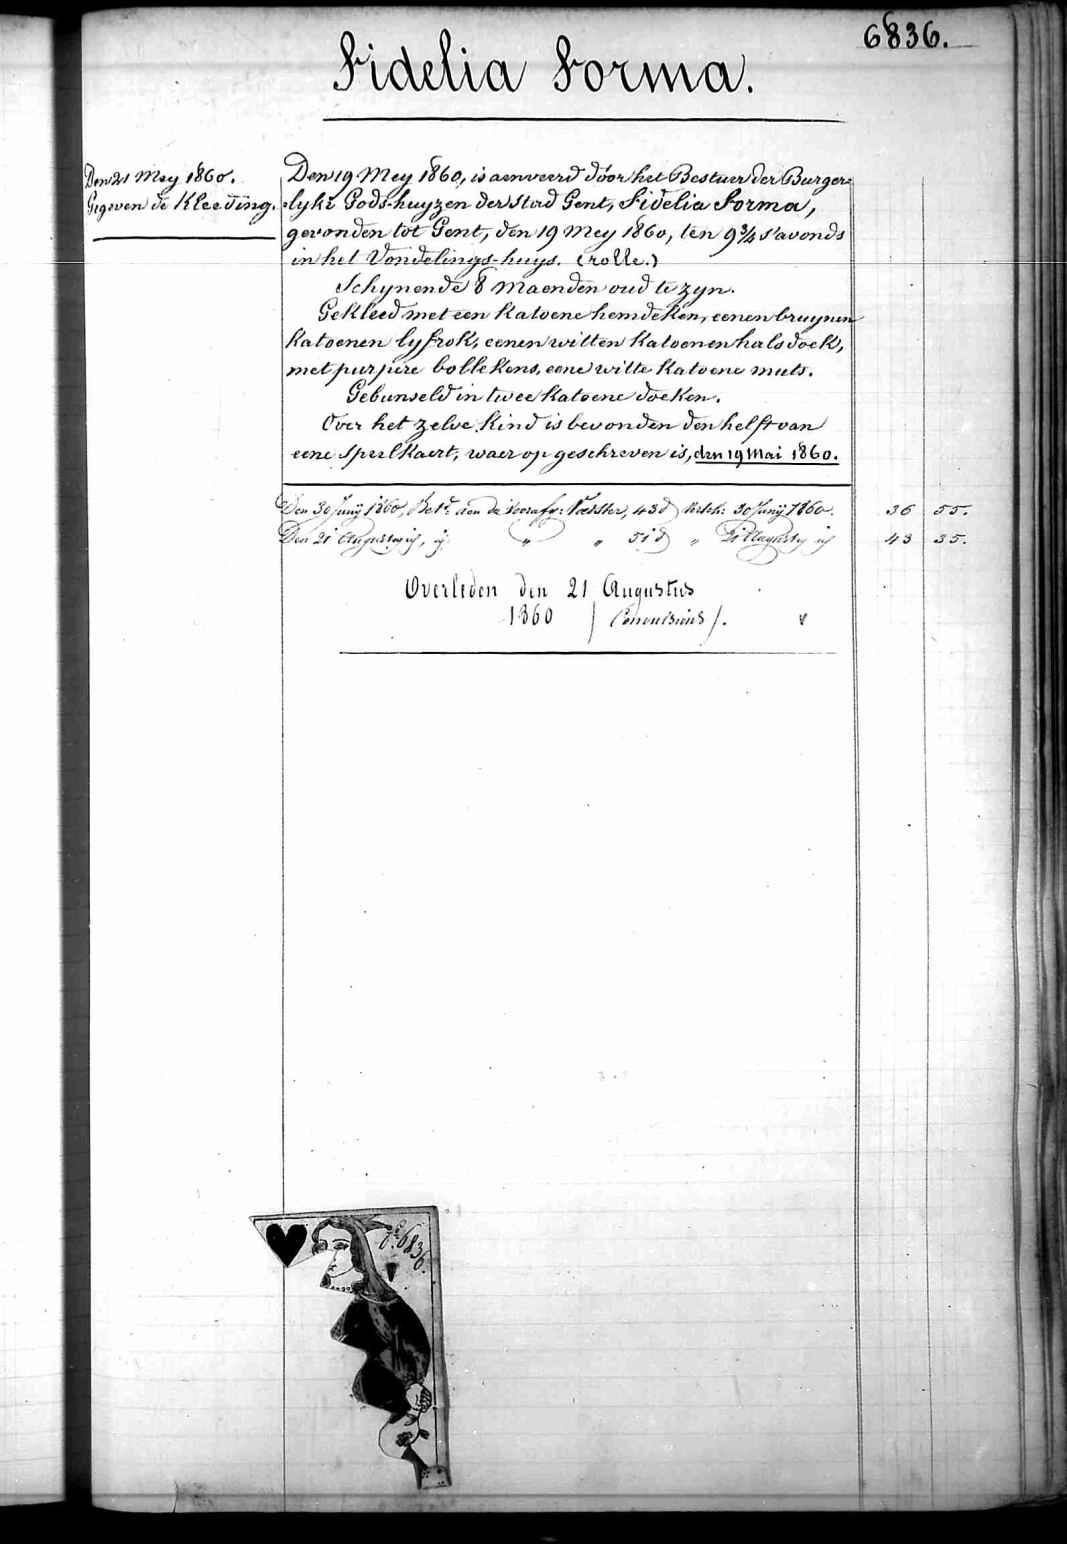 6836.
Fidelia Forma.
Den 21 Mey 1860.
Gegeven de Kleeding.
Den 19 Mey 1860, is aenveerd door het Bestuur der Burger-
lyke Gods-huyzen der stad Gent, Fidelia Forma,
gevonden tot Gent, den 19 Mey 1860, ten 9 3/4 s'avonds
in het Vondelings-huys. (rolle.)
Schynende 8 maenden oud te zyn.
Gekleed met een katoene hemdeken, eenen bruynen
katoenen lyfrok, eenen witten katoenen halsdoek,
met purpere bollekens, eene witte katoene muts.
Gebunseld in twee katoene doeken.
Over het zelve kind is bevonden den helft van
eene speelkaert, waer op geschreven is, den 19 Mai 1860.
Den 30 Juny 1860, Bet. aen de 43 d 30 Juny 1860. 36 55.
Den 21 Augusty " " 51 d " 21 Augusty 43 35.
Overleden den 21 Augustus
1860 / Convulsions /.
6836.